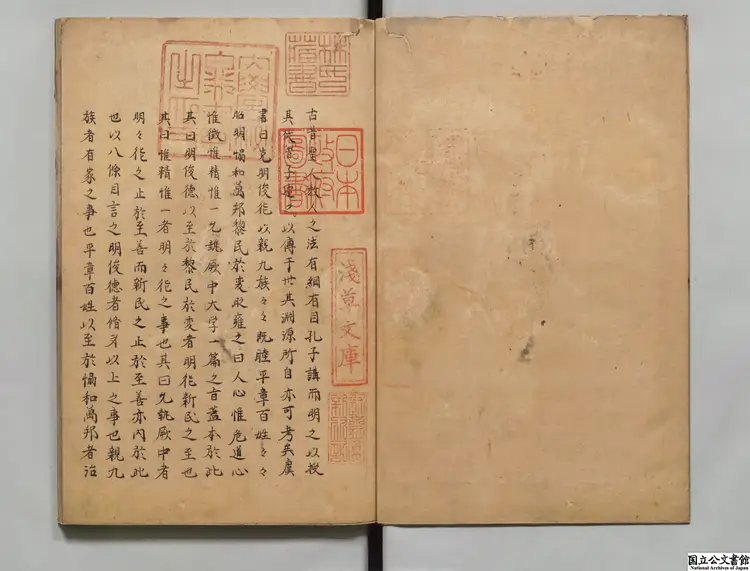 林氏藏書
日本政府圖書
淺草文庫
古昔聖人教人之法有綱有目孔子講而明之以授
其徒曾子述之以傳于世其淵源所自亦可考矣虞
書曰克明俊德以親九族々々既睦平章百姓々々
昭明協和萬邦黎民於変時雍又曰人心惟危道心
惟微惟精惟一允執厥中大学一篇之旨蓋本於此
其曰明俊德以至於黎民於変者明德新民之至也
其曰惟精惟一者明々德之事也其曰允執厥中者
明々德之止於至善而新民之止於至善亦内於此
也以八條目言之明俊德者脩身以上之事也親九
族者有家之事也平章百姓以至於協和萬邦者治
国立公文書館
National Archives of Japan